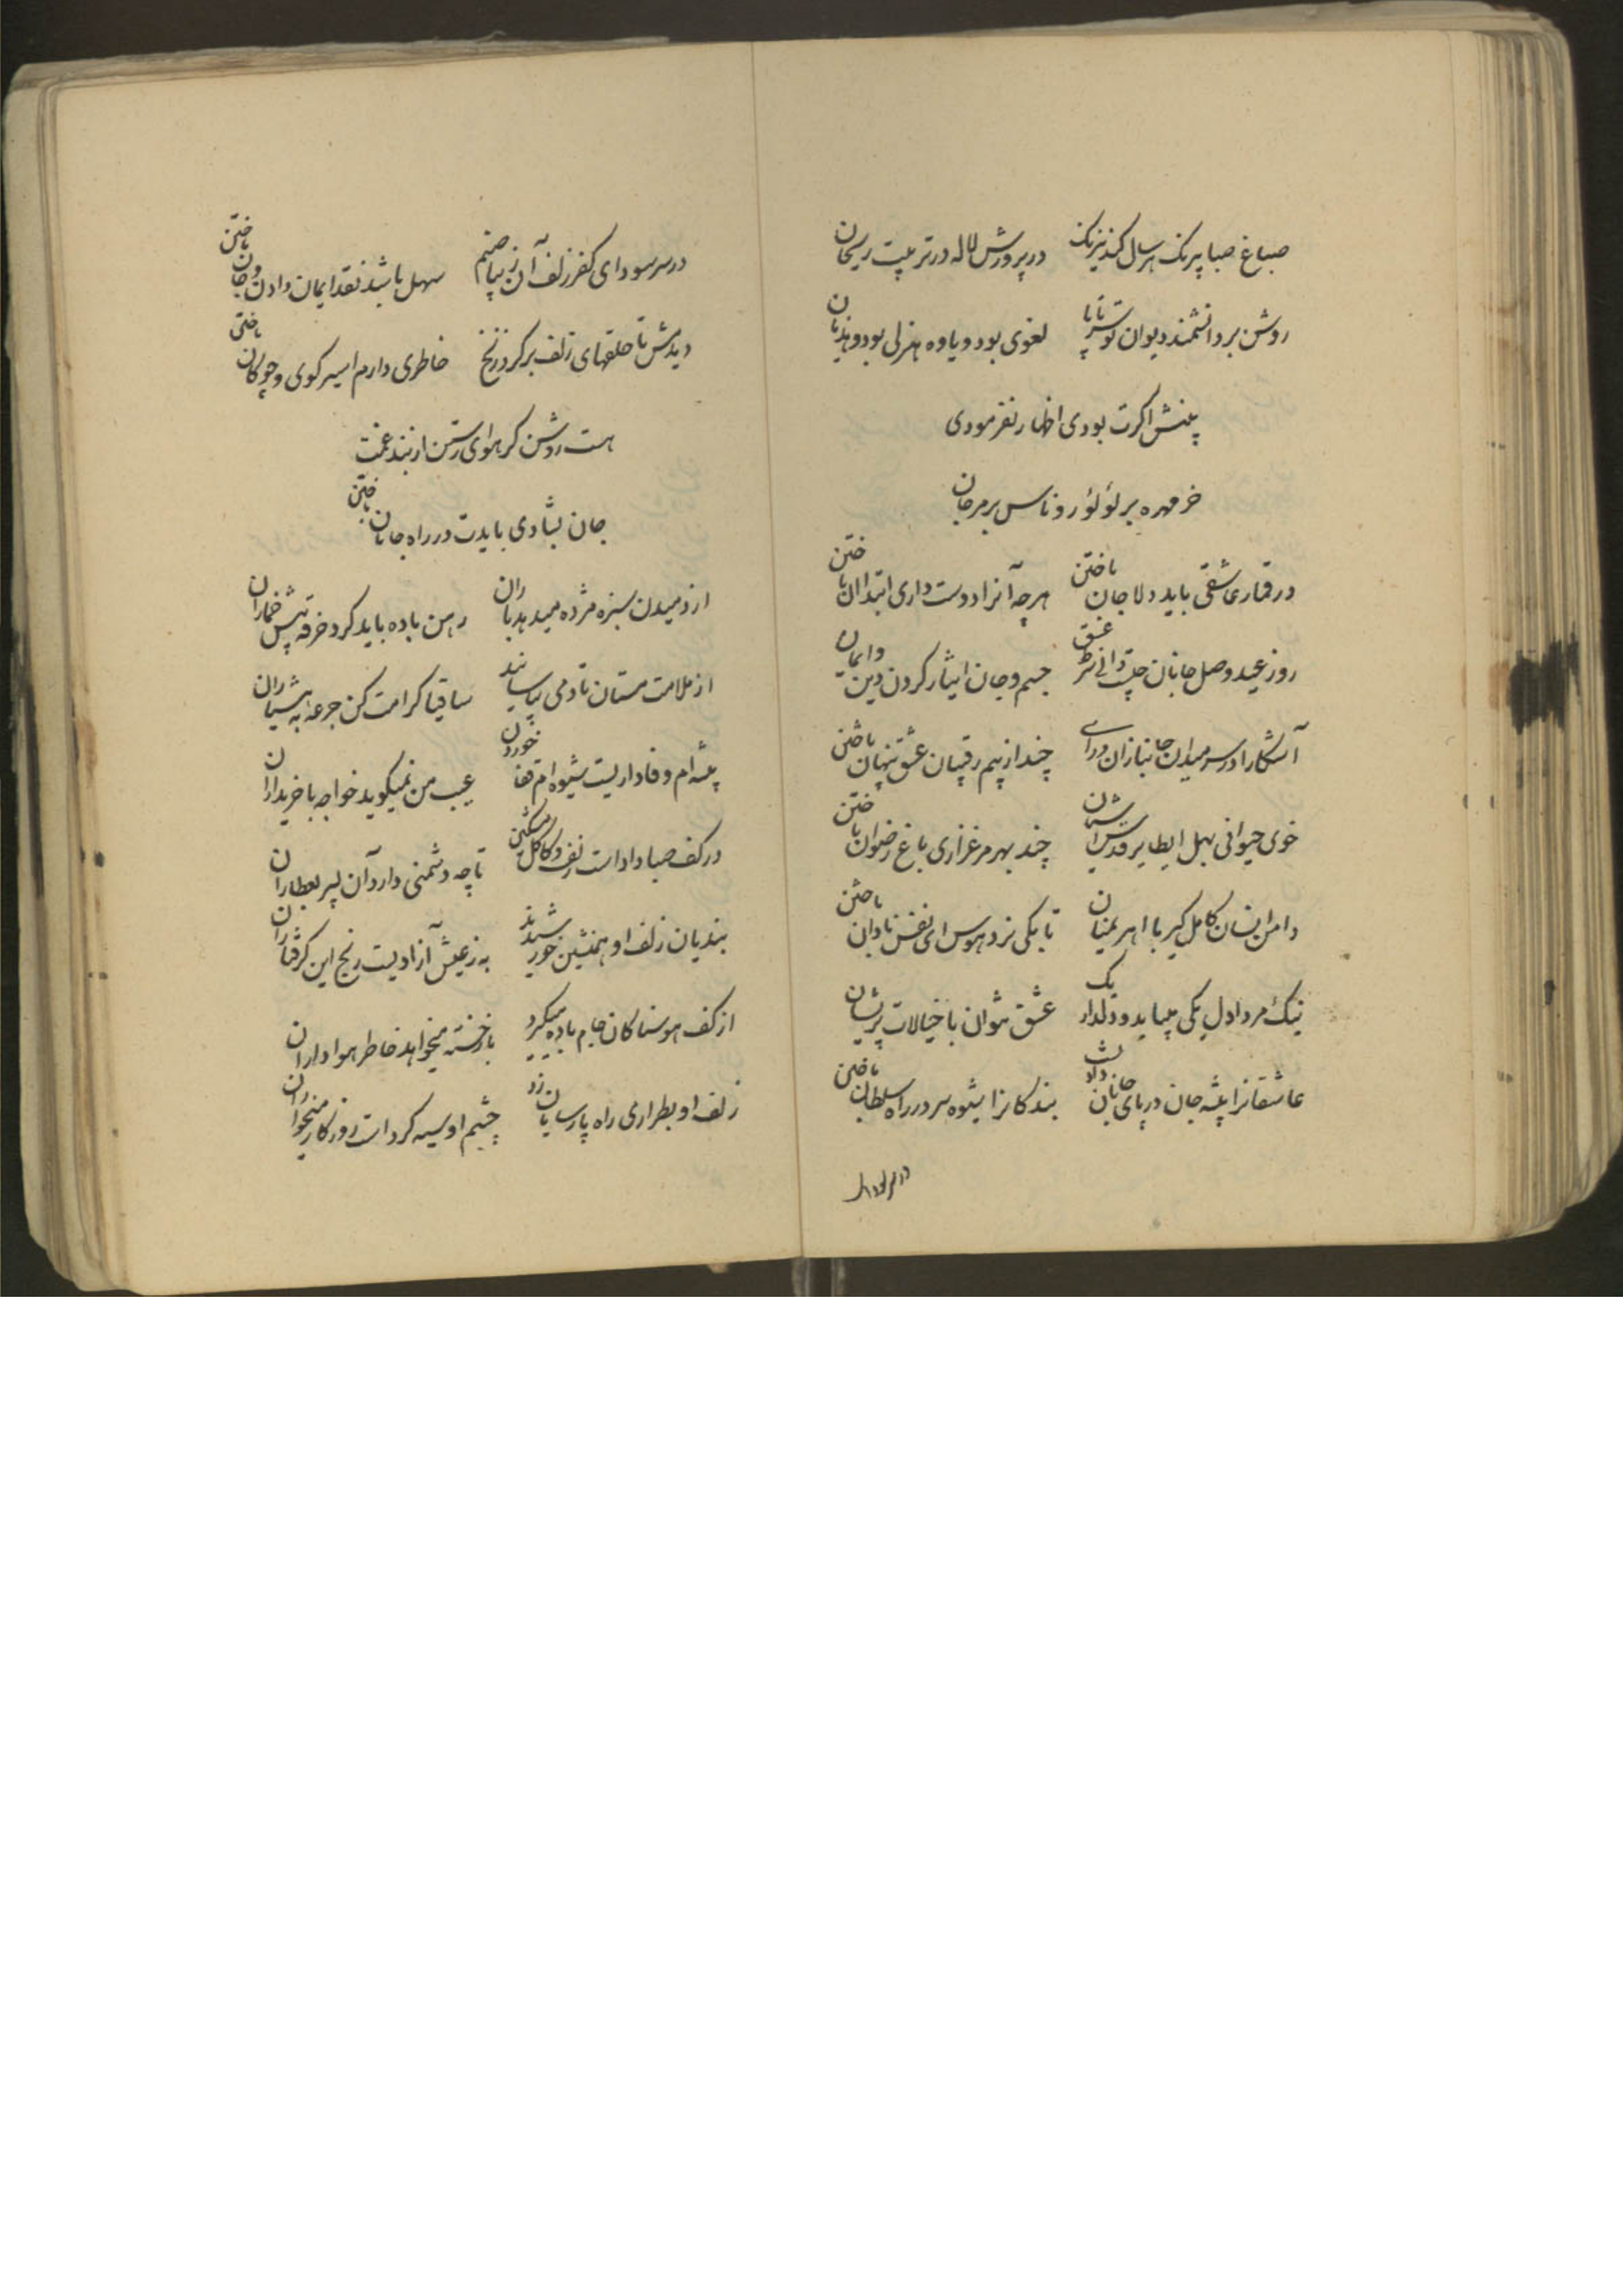 صباغ صبا بیرنک هر سال کند نیرنک در پرورش لاله در تربیت ریحان
روشن بر دانشمند دیوان تو سر تا پا لغوی بود و یاوه هزلی بود و هذیان
بینش اگرت بودی اظهار نفرمودی
خرمهره بر لؤلؤ روناس بر مرجان
در قمار عاشقی باید دلا جان باختن هر چه آنرا دوست داری ابتدا آن باختن
روز عید وصل جانان چیست دانی شرط عشق جسم و جان ایثار کردن دین و ایمان
آشکارا در سر میدان جانبازان درای چند از بیم رقیبان عشق پنهان باختن
خوی حیوانی بهل ای طایر قدس آشیان چند بهر مرغزاری باغ رضوان باختن
دامن انسان کامل گیر با اهریمنان تا بکی نرد هوس ای نفس نادان باختن
نیک مرد ا دل یکی میباید و دلدار یک عشق نتوان با خیالات پریشان
عاشقانرا پیشه جان در پای جانان دادنست بندکانرا شیوه سر در راه سلطان باختن
در سر سودای کفر زلف آن زیبا صنم سهل باشد نقد ایمان دادن و جان باختن
دیدمش تا حلقهای زلف بر کرد زنخ خاطری دارم اسیر کوی و چوکان باختن
هست روشن کر هوای رستن از بند غمت
جان بشادی بایدت در راه جانان باختن
از دمیدن سبزه مژده میدهد باران رهن باده باید کرد خرقه پیش خماران
از ملامت مستان تا دمی بیاسایند ساقیا کرامت کن جرعه به هشیاران
پیشه ام وفاداریست شیوه ام قفا خوردن عیب من نمیکوید خواجه با خریداران
در کف صبا داد است زلف و کاکل مشکین تا چه دشمنی دارد آن پسر بعطاران
بندیان زلف او همنشین خورشیدند به ز عیش آزادیست رنج این کرفتاران
از کف هوسناکان جام باده میکیرد باز خسته میخواهد خاطر هواداران
زلف او بطراری راه پارسایان زد چشم او سیه کرد است روزکار میخواران